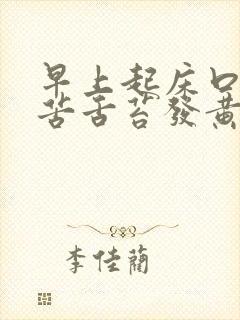 早上起床口
苦舌苔發黃
李佳蘭